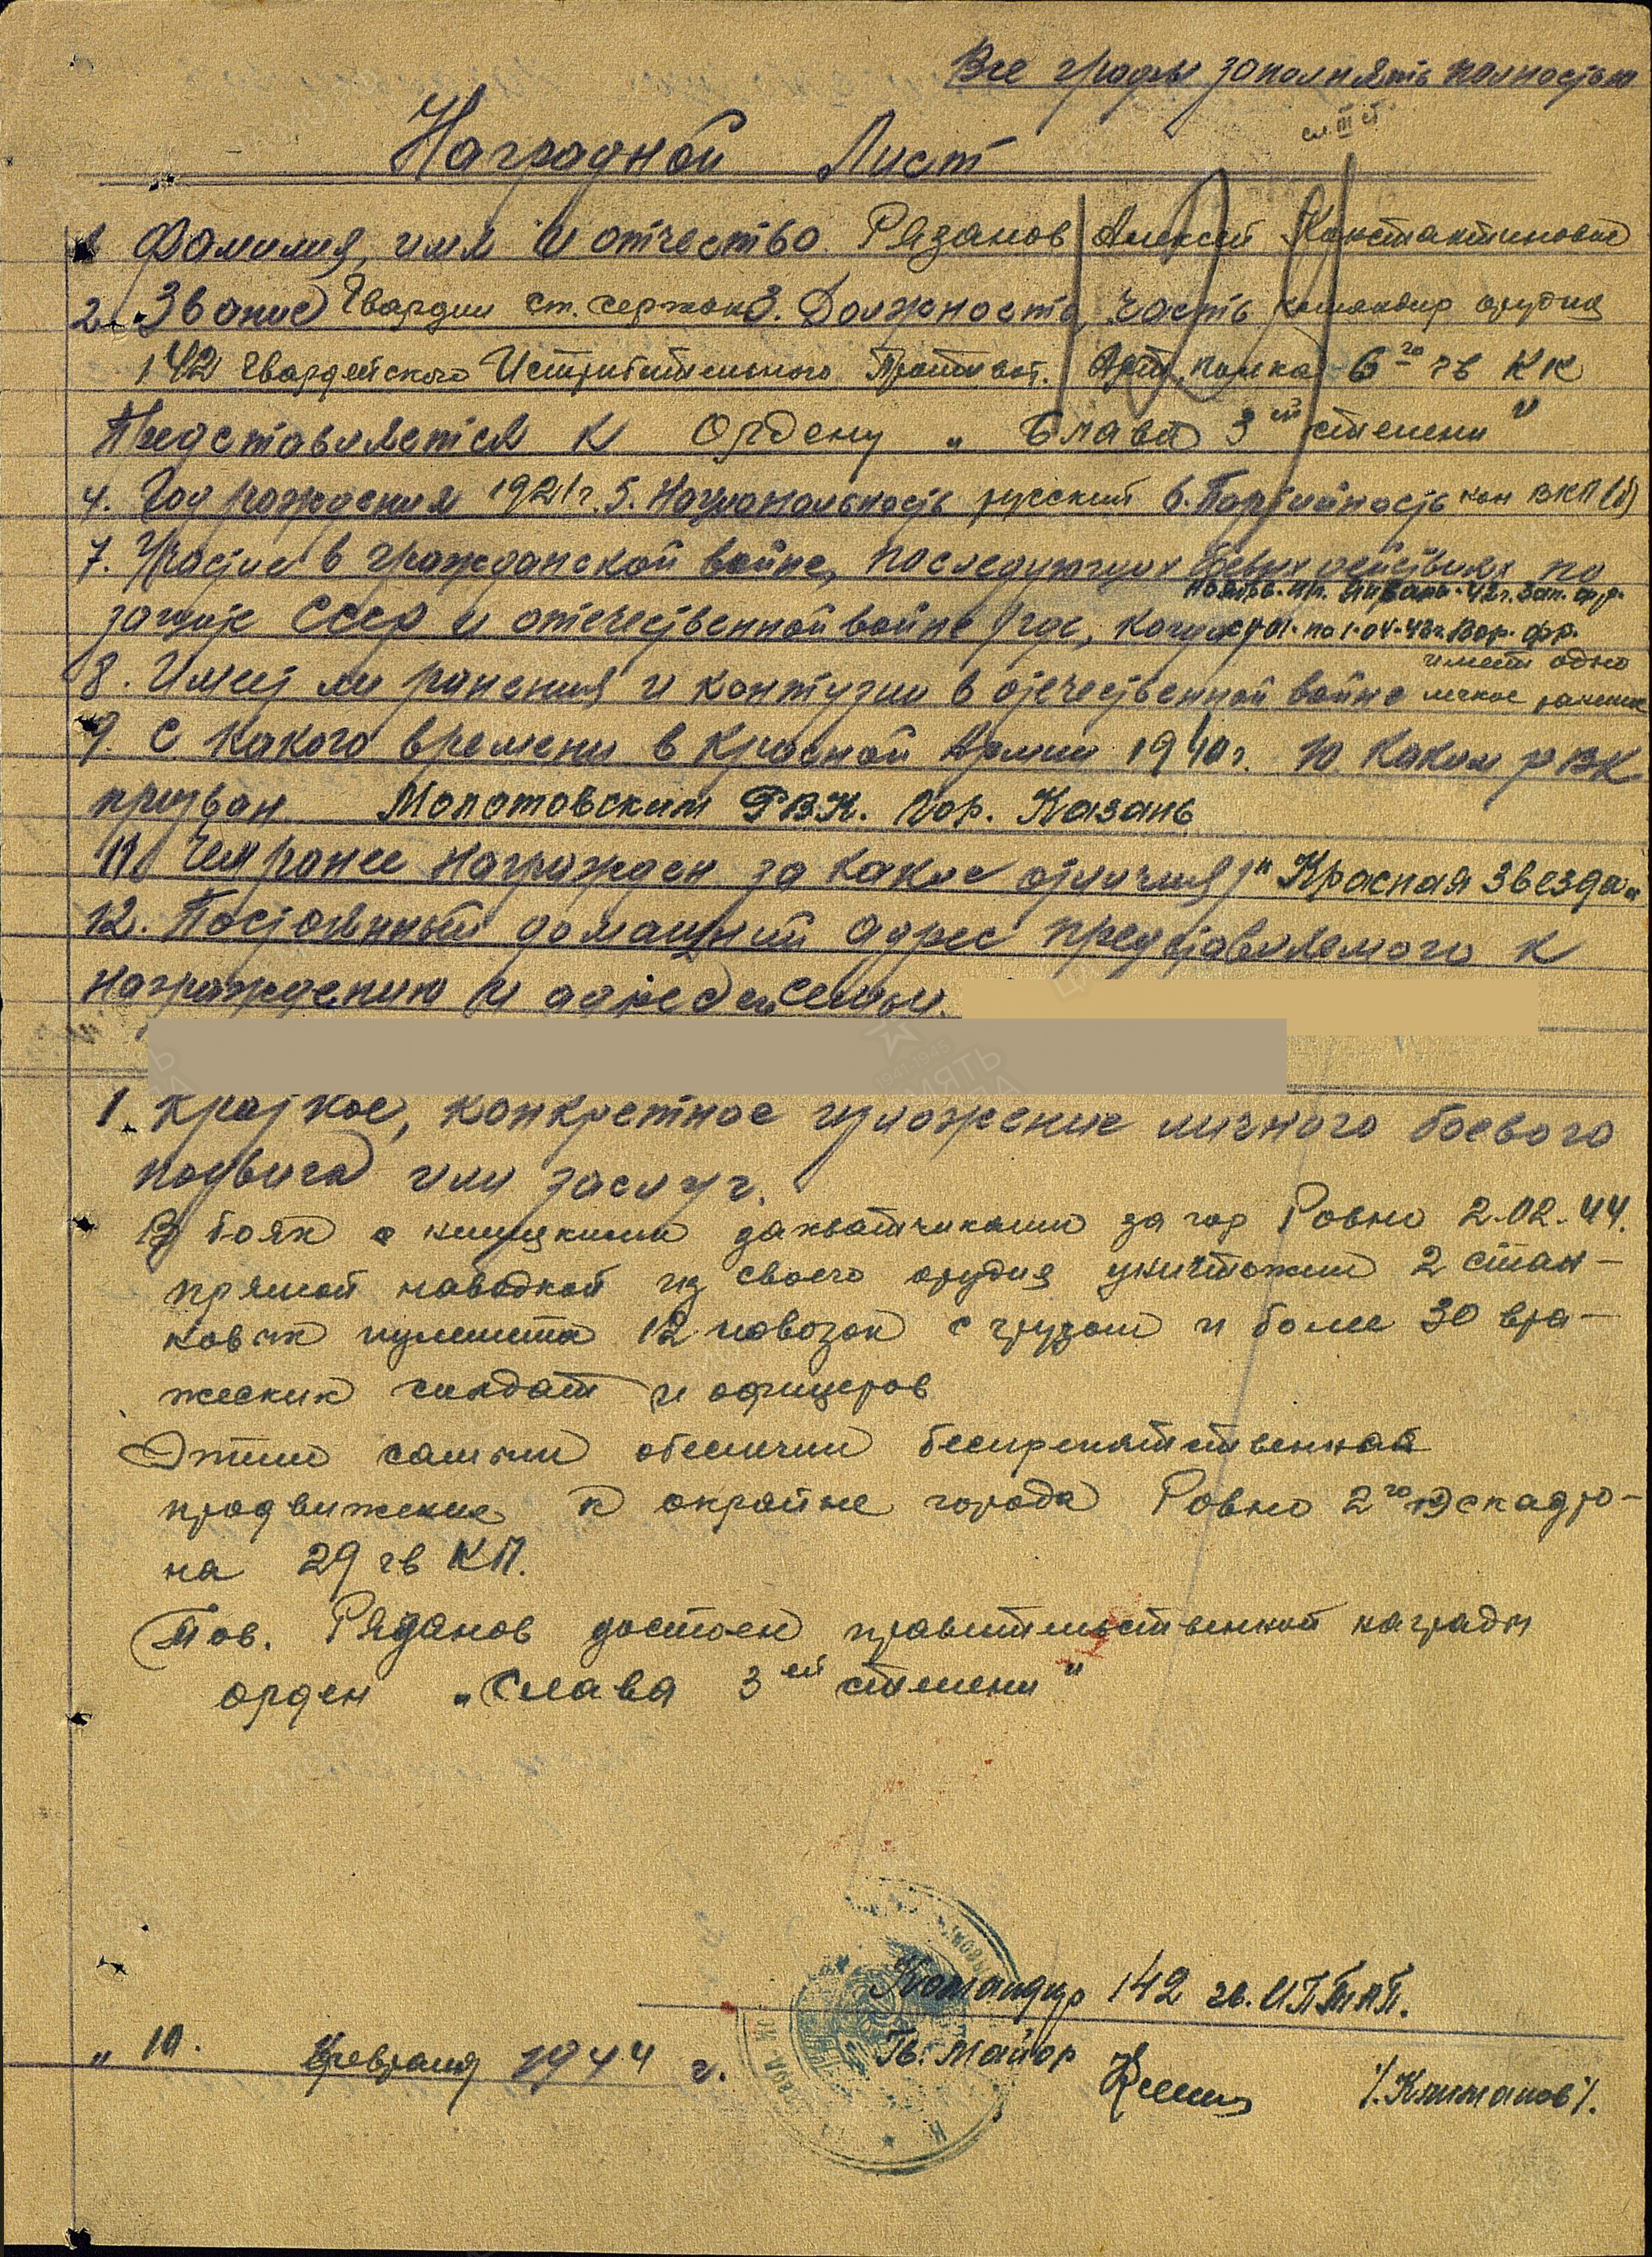 Все графы заполнять полностью
сл III ст
Наградной Лист
1 Фамилия, имя и отчество Рязанов Алексей Константинович
2. Звание Гвардии ст. сержан 3. Должность, часть командир орудия
142 Гвардейского Истребительного Противот. Арт. полка 6го гв КК
Представляется к Ордену „Слава 3ей степени"
4. Год рождения 1921 г. 5. Национальность русский 6. Партийность кан ВКП(б)
7. Участие в гражданской войне, последующих боевых действиях по
ноябрь 41г. Январь-42г. Зап. фр.
защите СССР и отечественной войне /где, когда с 1-01. по 1-04-43г. Вор. фр.
имеет одно
8. Имеет ли ранения и контузии в отечественной войне легкое ранение
9. С какого времени в Красной Армии 1940г. 10. Каким РВК
призван Молотовским РВК. Гор. Казань
11. Чем ранее награжден за какие отличия/ "Красная Звезда"
12. Постоянный домашний адрес представляемого к
награждению и адрес семьи.
1. Краткое, конкретное изложение личного боевого
подвига или заслуг.
В боях с немецкими захватчиками за гор Ровно 2.02.44.
прямой наводкой из своего орудия уничтожил 2 стан-
ковых пулемета 12 повозок с грузом и более 30 вра-
жеских солдат и офицеров
Этим самым обеспечил беспрепятственное
продвижение к окрайне города Ровно 2го эскадро-
на 29 гв КП.
Тов. Рязанов достоен правительственной награды
орден „Слава 3ей степени"
Командир 142 гв. ИПТАП.
„10. февраля 1944 г.
Гв. майор
/.Климанов/.